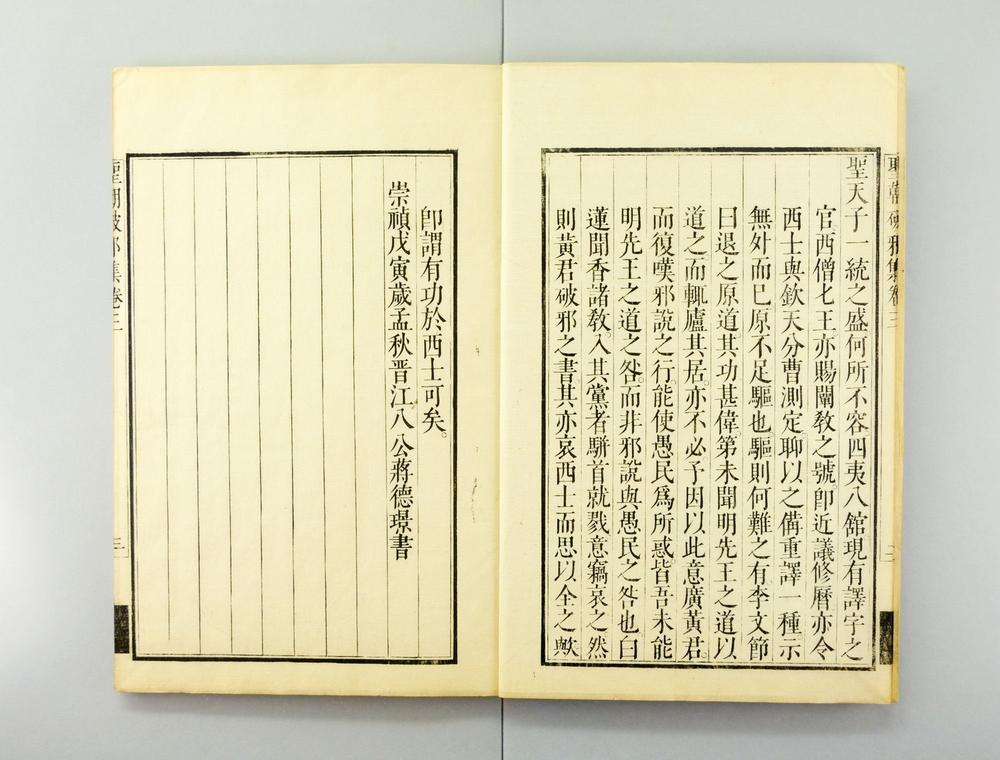 聖朝破邪集卷三
二
聖天子一統之盛何所不容四夷八舘現有譯字之
官西僧七王亦賜闡敎之號。卽近議修曆亦令
西士與欽天分曹測定聊以之備重譯一種示
無外而已原不足驅也驅則何難之有李文節
曰退之原道其功甚偉第未聞明先王之道以
道之而輒廬其居。亦不必予因以此意廣黃君。
而復嘆邪說之行。能使愚民爲所惑。皆吾未能
明先王之道之咎。而非邪說與愚民之咎也白
蓮聞香諸敎。入其黨者騈首就戮意竊哀之然
則黃君破邪之書。其亦哀西士而思以全之歟
卽謂有功於西士可矣。
崇禎戊寅歲孟秋晋江八公蔣德璟書
聖朝破邪集卷三
三